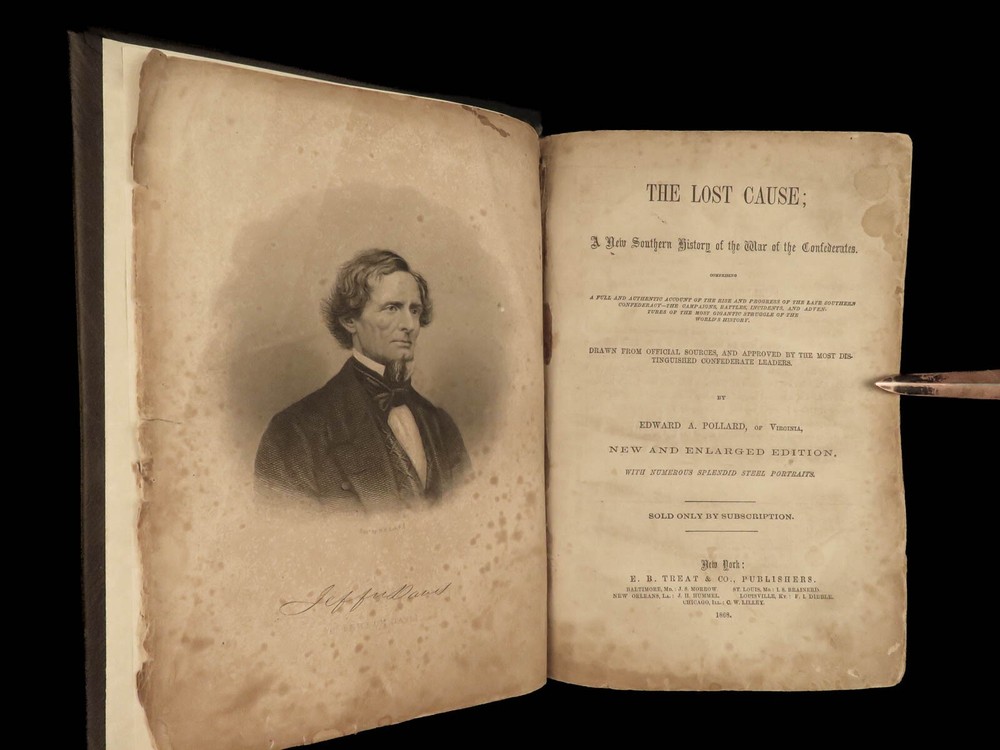 Jefferson Davis
THE LOST CAUSE;
A New Southern History of the War of the Confederates.
COMPRISING
A FULL AND AUTHENTIC ACCOUNT OF THE RISE AND PROGRESS OF THE LATE SOUTHERN
CONFEDERACY—THE CAMPAIGNS, BATTLES, INCIDENTS, AND ADVEN-
TURES OF THE MOST GIGANTIC STRUGGLE OF THE
WORLD'S HISTORY.
DRAWN FROM OFFICIAL SOURCES, AND APPROVED BY THE MOST DIS-
TINGUISHED CONFEDERATE LEADERS.
BY
EDWARD A. POLLARD, OF VIRGINIA,
NEW AND ENLARGED EDITION,
WITH NUMEROUS SPLENDID STEEL PORTRAITS.
SOLD ONLY BY SUBSCRIPTION.
New York:
E. B. TREAT & CO., PUBLISHERS.
BALTIMORE, MD.: J. S. MORROW. ST. LOUIS, MO.: I. S. BRAINERD.
NEW ORLEANS, LA.: J. H. HUMMEL. LOUISVILLE, KY.: F. I. DIBBLE.
CHICAGO, ILL.: C. W. LILLEY.
1868.